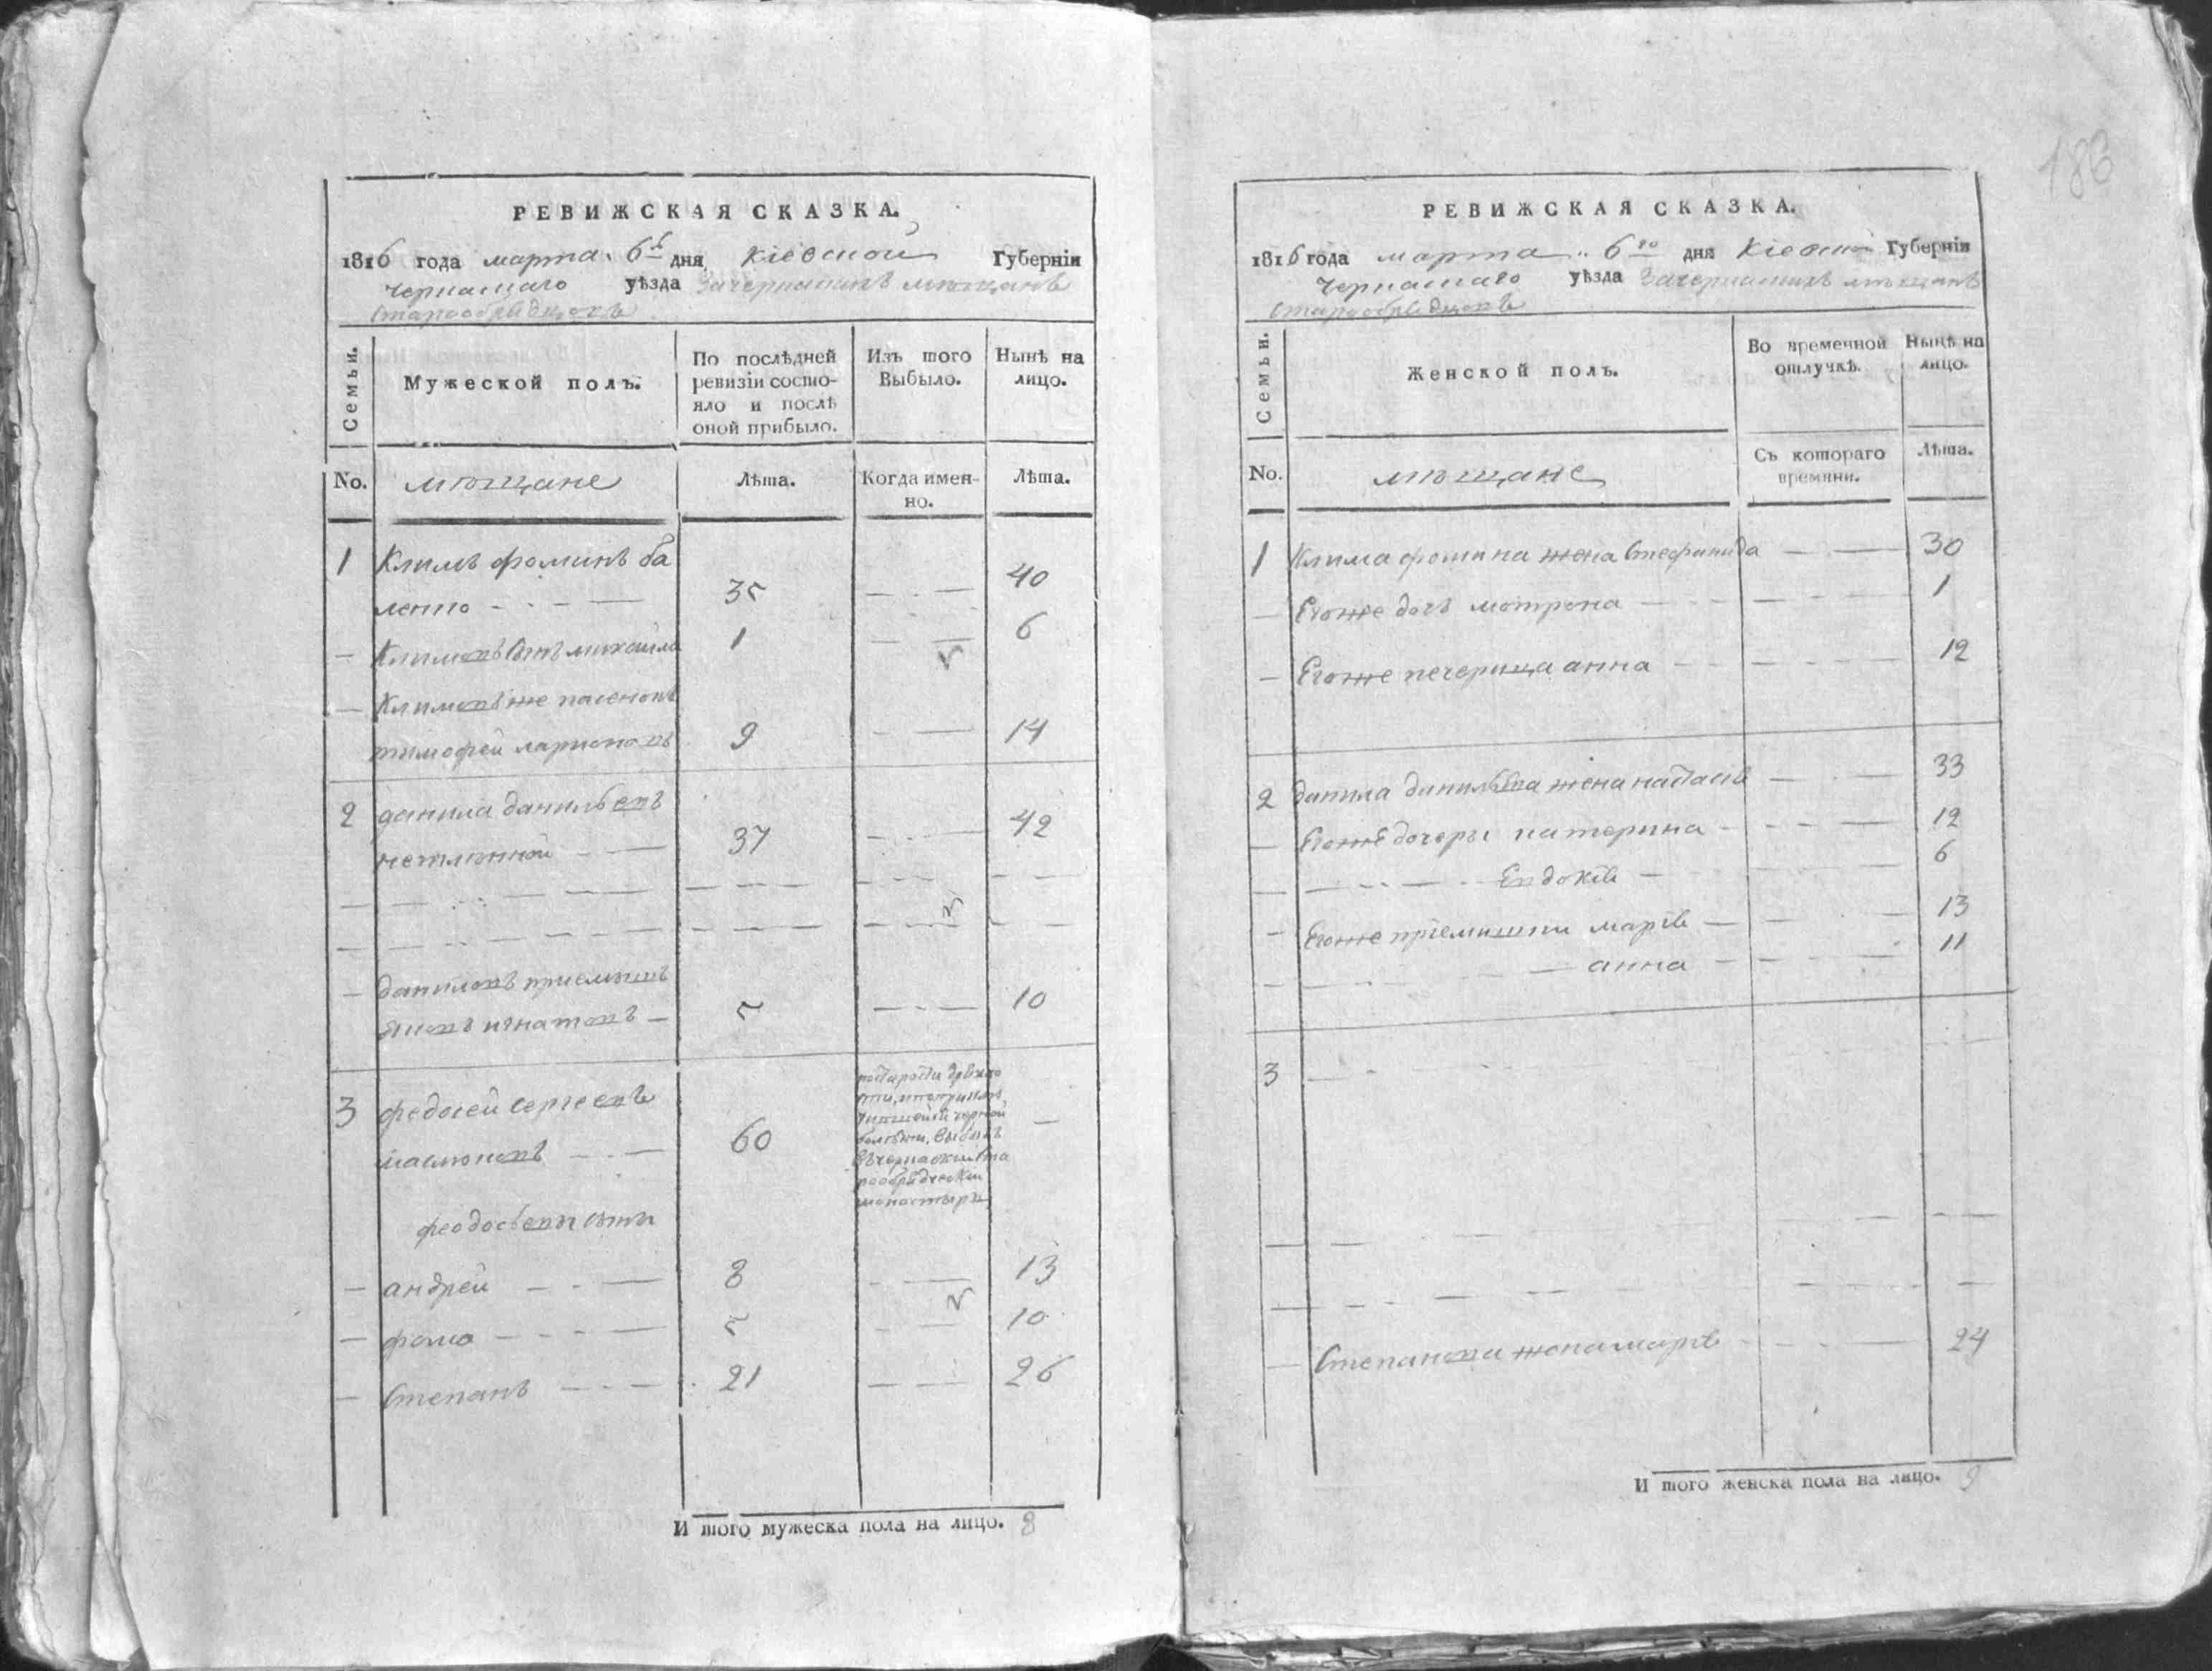 РЕВИЖСКАЯ СКАЗКА.
1816 года марта 6го дня Кіевской Губерніи
Черкаскаго уѣзда Зачеркаскихъ мѣщанъ
Старообрядцовъ
Семьи.
Мужеской полъ.
По послѣдней ревизіи состо-
яло и послѣ
оной прибыло.
Изъ того
Выбыло.
Нынѣ на
лицо.
No.
мѣщане
Лѣта.
Когда имен-
но.
Лѣта.
1 Климъ фоминъ ба
ленко 35 40
Климовъ сынъ михайла 1 6
Климовъ же пасенокъ
тимофей ларионовъ 9 14
2 данила данильевъ
37 42
даниловъ приемышъ
игнатовъ 5 10
3 федосей сергеевъ
60
монастырь
феодосѣевы сыны
андрей 8 13
фома 5 10
Степанъ 21 26
И того мужеска пола на лицо. 8
186
РЕВИЖСКАЯ СКАЗКА.
1816 года марта 6го дня Кіевской Губерніи
Черкаскаго уѣзда Зачеркаскихъ мѣщанъ
Старообрядцовъ
Семьи.
Женской полъ.
Во временной
отлучкѣ.
Нынѣ на
лицо.
No.
мѣщане
Съ котораго
времяни.
Лѣта.
1 Клима фомина жена Стефанида 30
Егоже дочь мотрона 1
Егоже печерица анна 12
2 данила данильева жена настасія 33
Егоже дочеры катерина 12
Евдокія 6
Егоже пріемишки марія 13
анна 11
3
Степанова жена марія 24
И того женска пола на лицо. 9